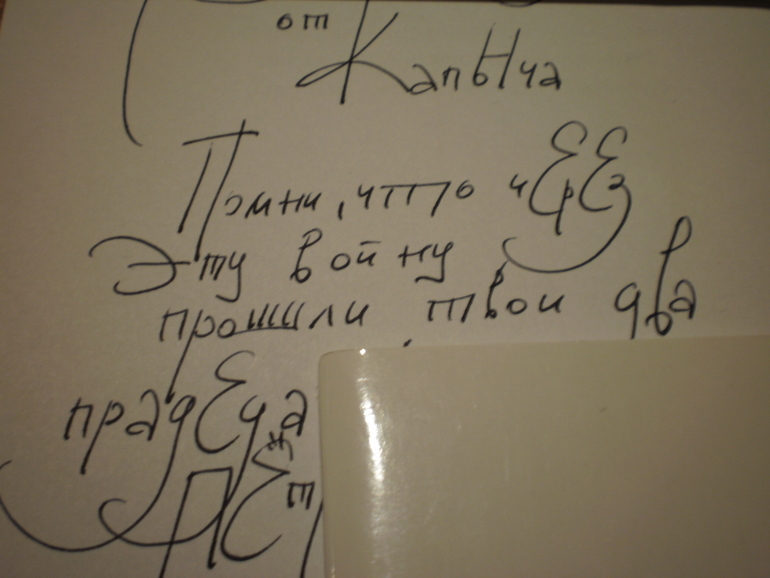 от
Капыча
Помни, что чЕрЕз
Эту войну
прошли твои два
прадЕда
ПЁт